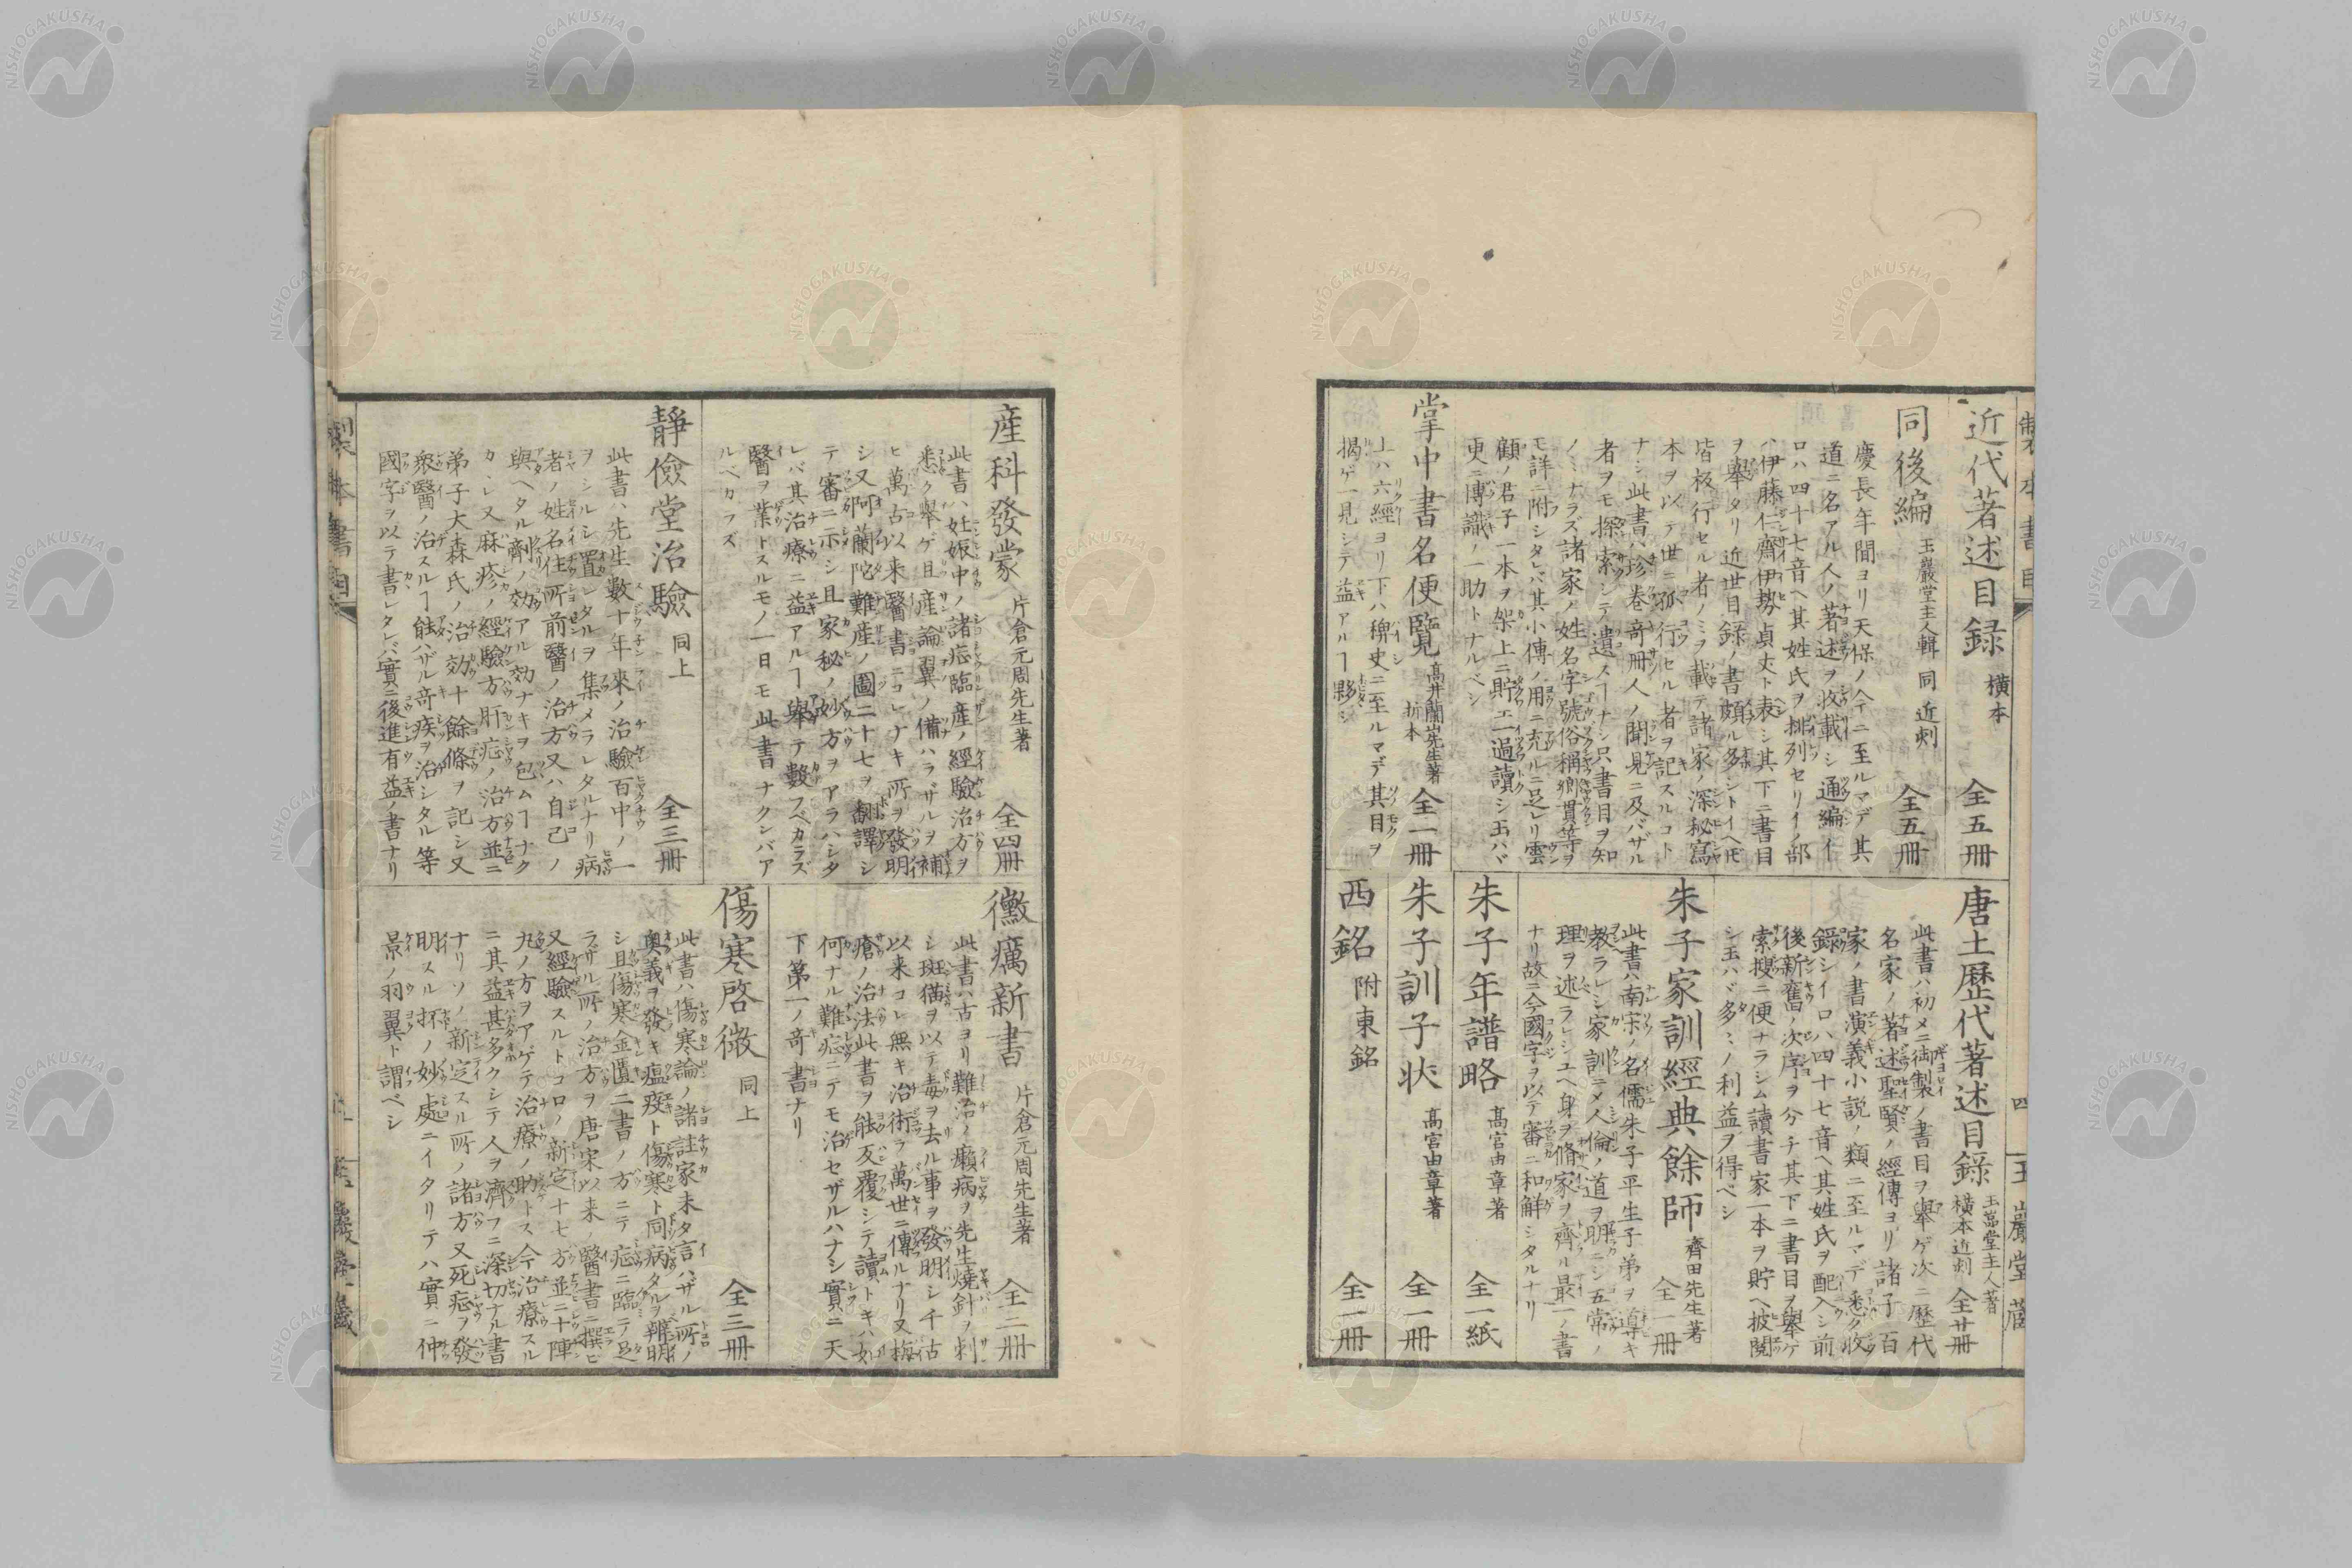 製本書目
四
玉巖堂蔵
近代著述目録 横本 全五冊
同後編 玉巖堂主人輯 同 近刻 全五冊
慶長年間ヨリ天保ノ今ニ至ルマデ其
道ニ名アル人ノ著述ヲ收載シ通編イ
ロハ四十七音ヘ其姓氏ヲ排列セリイノ部
ハ伊藤仁齋伊勢貞丈ト表シ其下ニ書目
ヲ擧タリ近世目録ノ書頗ル多シトイヘ𪜈
皆板行セル者ノミヲ載テ諸家ノ深秘寫
本ヲ以テ世ニ孤行セル者ヲ記スルコト
ナシ此書ハ珍巻奇冊人ノ聞見ニ及バザル
者ヲモ探索シテ遺ノヿナシ只書目ヲ知
ノミナラズ諸家ノ姓名字號俗稱郷貫等ヲ
モ詳ニ附シタレバ其小傳ノ用ニ充ルニ足レリ雲
顧ノ君子一本ヲ架上ニ貯エ一過讀シ玉ハバ
更ニ博識ノ一助トナルベシ
掌中書名便覽 髙井蘭山先生著 折本 全一冊
上ハ六經ヨリ下ハ稗史ニ至ルマデ其目ヲ
揭ゲ一見シテ益アルヿ夥シ
唐土歴代著述目録 玉巖堂主人著 横本近刻 全廿冊
此書ハ初メニ御製ノ書目ヲ擧ゲ次ニ歴代
名家ノ著述聖賢ノ經傳ヨリ諸子百
家ノ書演義小説ノ類ニ至ルマデ悉ク收
錄シイロハ四十七音ヘ其姓氏ヲ配入シ前
後新舊ノ次序ヲ分チ其下ニ書目ヲ擧ゲ
索搜ニ便ナラシム讀書家一本ヲ貯ヘ披閲
シ玉ハバ多ミノ利益ヲ得ベシ
朱子家訓經典餘師 齊田先生著 全一冊
此書ハ南宋ノ名儒朱子平生子弟ヲ導キ
教ラレシ家訓ニメ人倫ノ道ヲ明ニシ五常ノ
理ヲ述ラレシユヘ身ヲ脩家ヲ齊ル最一ノ書
ナリ故ニ今國字ヲ以テ審ニ和解シタルナリ
朱子年譜略 髙宮由章著 全一紙
朱子訓子状 髙宮由章著 全一冊
西銘 附東銘 全一冊
産科發蒙 片倉元周先生著 全四冊
此書ハ妊娠中ノ諸症臨産ノ經驗治方ヲ
悉ク擧ゲ且産論翼ノ備ハラザルヲ補
ヒ萬古以来醫書ニコレナキ所ヲ發明
シ又阿蘭陀難産ノ圖二十七ヲ翻譯シ
テ審ニ示シ且家秘ノ妙方ヲアラハシタ
レバ其治療ニ益アルヿ擧テ數フベカラズ
醫ヲ業トスルモノ一日モ此書ナクンバア
ルベカラズ
靜儉堂治驗 同上 全三冊
此書ハ先生數十年來ノ治驗百中ノ一
ヲシルシ置レタルヲ集メラレタルナリ病
者ノ姓名住所前醫ノ治方又ハ自己ノ
與ヘタル劑ノ効アル効ナキヲ包ムヿナク
カヽレ又麻疹ノ經驗方肝症ノ治方並ニ
弟子大森氏ノ治効十餘條ヲ記シ又
衆醫ノ治スルヿ能ハザル奇疾ヲ治シタル等
國字ヲ以テ書レタレバ實ニ後進有益ノ書ナリ
黴癘新書 片倉元周先生著 全二冊
此書ハ古ヨリ難治ノ癩病ヲ先生燒針ヲ刺
シ斑猫ヲ以テ毒ヲ去ル事ヲ發明シ千古
以来コレ無キ治術ヲ萬世ニ傳ルナリ又梅
瘡ノ治法此書ヲ能反覆シテ讀トキハ如
何ナル難症ニテモ治セザルハナシ實ニ天
下第一ノ奇書ナリ
傷寒啓微 同上 全三冊
此書ハ傷寒論ノ諸註家未タ言ハザル所ノ
奥義ヲ發キ瘟疫ト傷寒ト同病タルヲ辨明
シ且傷寒金匱二書ノ方ニテ症ニ臨テ足
ラザル所ノ治方ヲ唐宋以来ノ醫書ニ撰ビ
又經驗スルトコロノ新定十七方並ニ十陣
九ノ方ヲアゲテ治療ノ助トス今治療スル
ニ其益甚多クシテ人ヲ濟フニ深切ナル書
ナリソノ新定スル所ノ諸方又死症ヲ發
明スル抔ノ妙處ニイタリテハ實ニ仲
景ノ羽翼ト謂ベシ
製本書目
玉巖堂藏